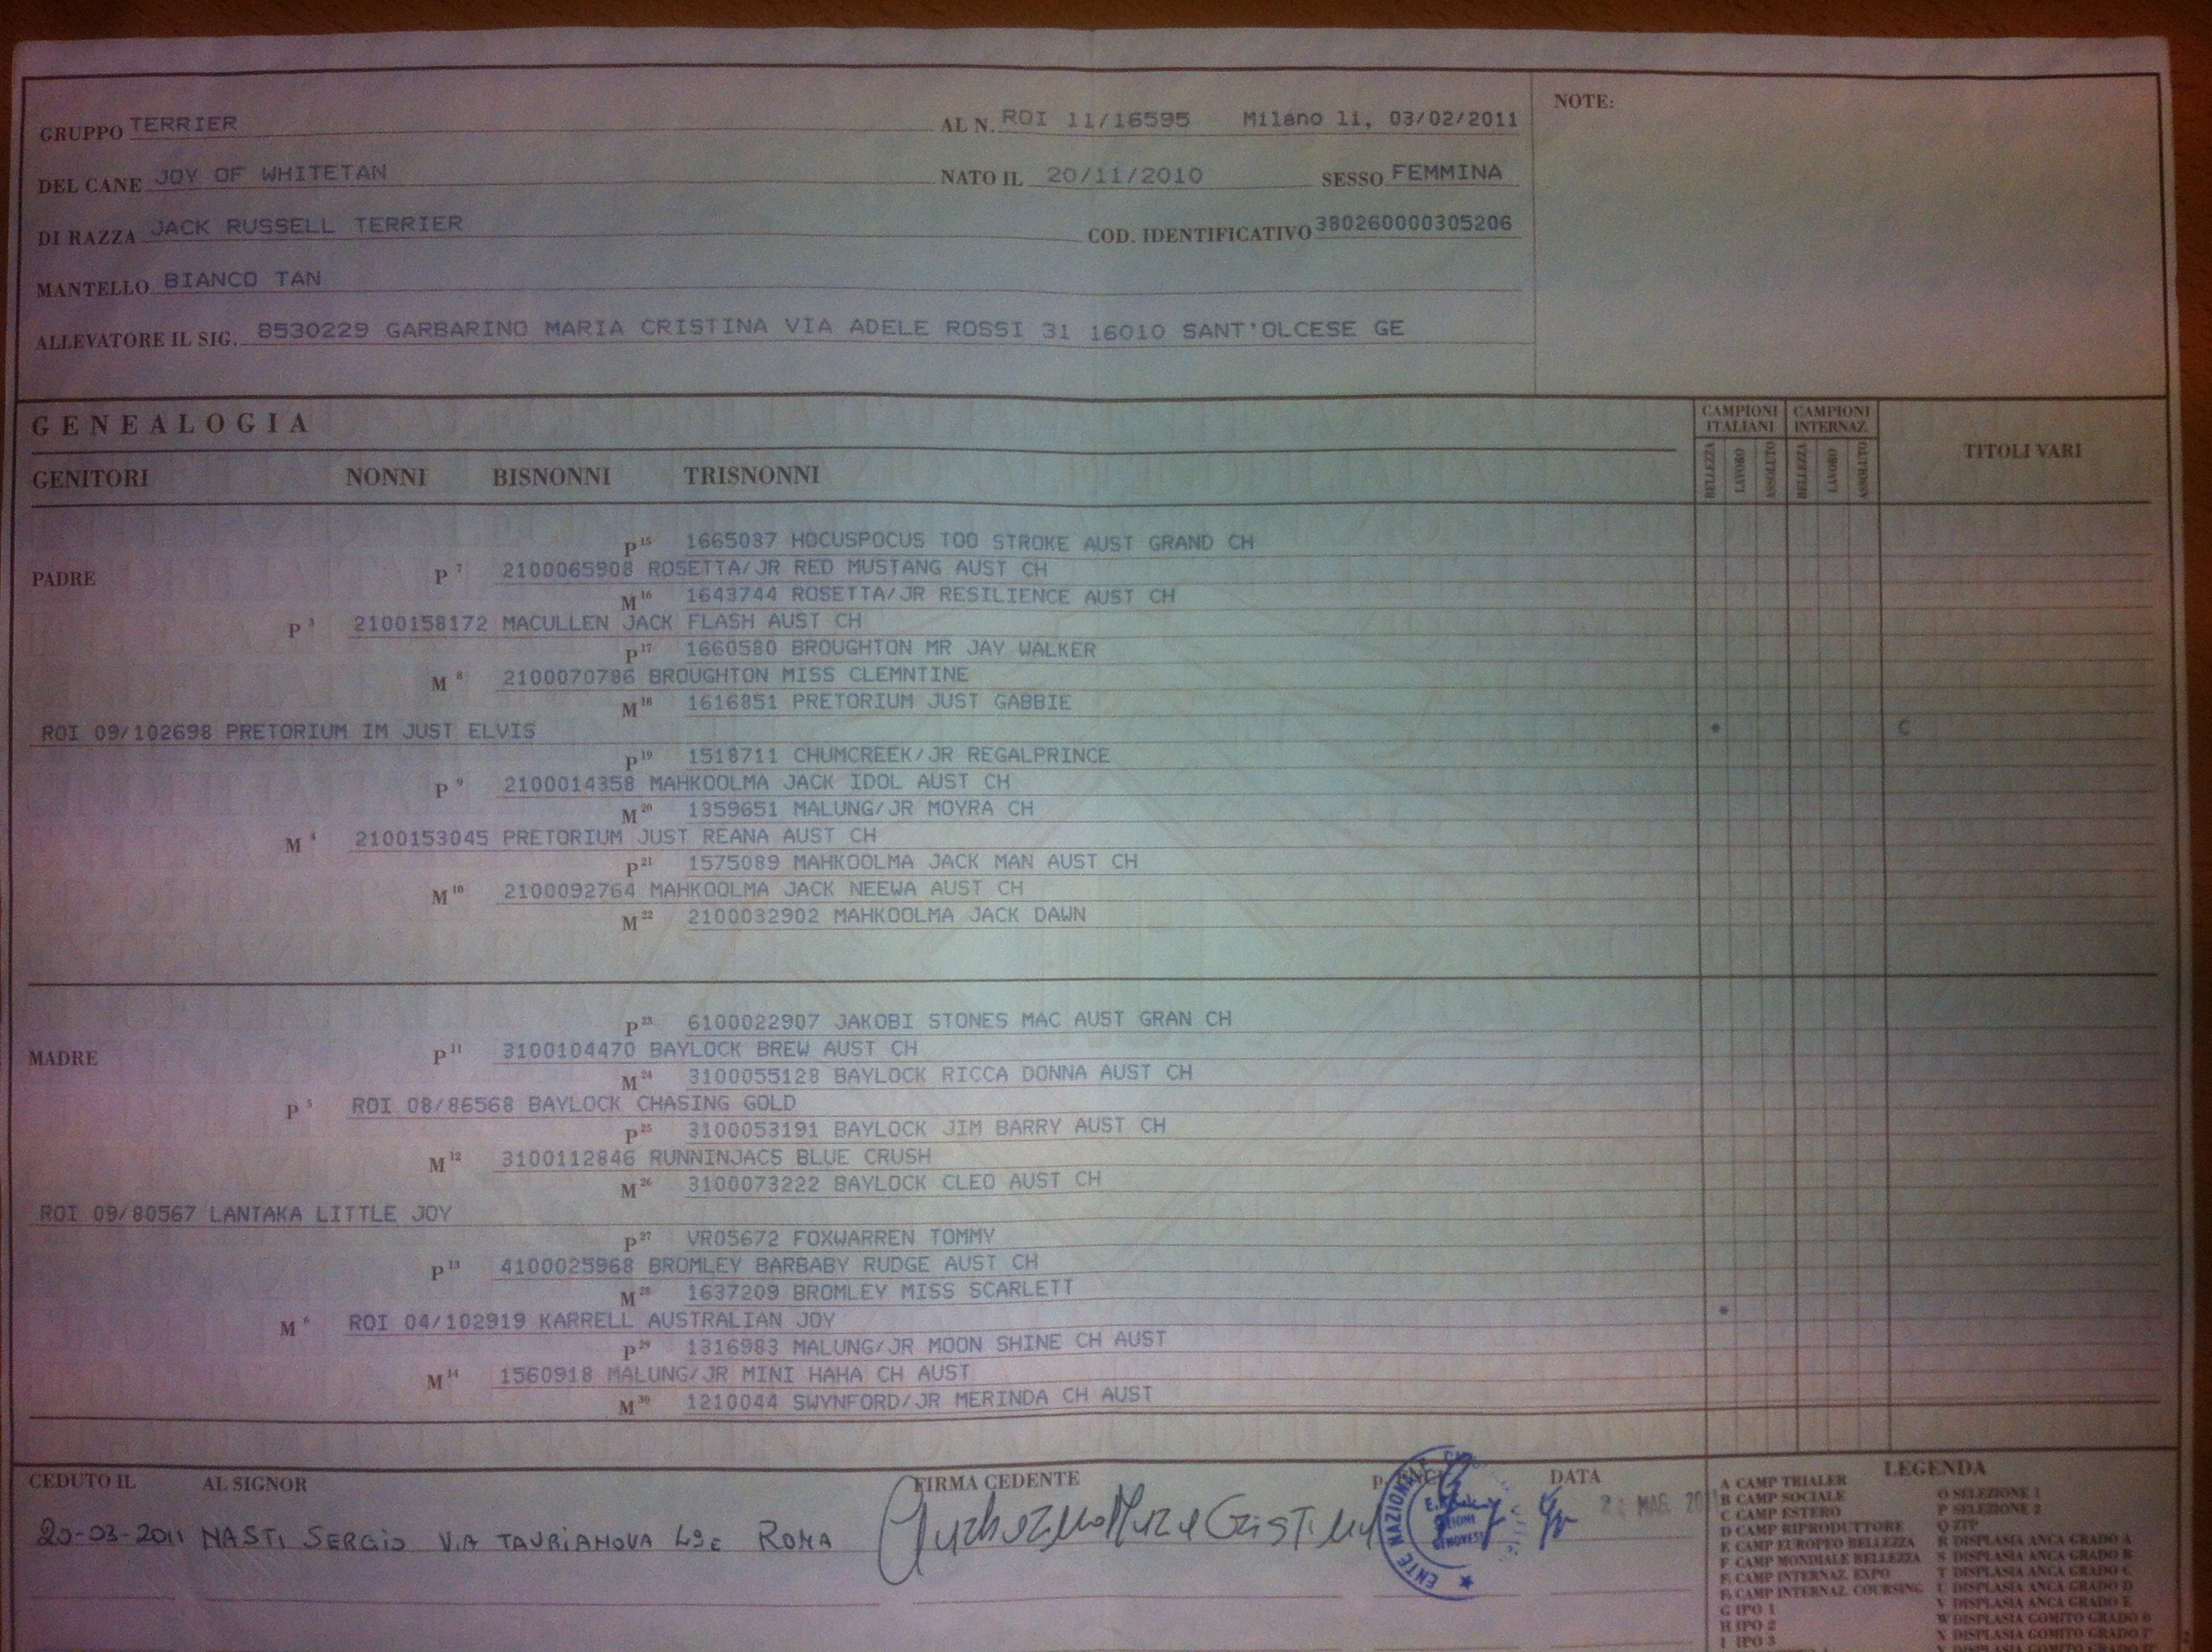 GRUPPO TERRIER AL N. ROI 11/16595 Milano li, 03/02/2011 NOTE:
DEL CANE JOY OF WHITETAN NATO IL 20/11/2010 SESSO FEMMINA
DI RAZZA JACK RUSSELL TERRIER COD. IDENTIFICATIVO 380260000305206
MANTELLO BIANCO TAN
ALLEVATORE IL SIG. 8530229 GARBARINO MARIA CRISTINA VIA ADELE ROSSI 31 16010 SANT'OLCESE GE
GENEALOGIA
CAMPIONI ITALIANI CAMPIONI INTERNAZ.
BELLEZZA LAVORO ASSOLUTO BELLEZZA LAVORO ASSOLUTO TITOLI VARI
GENITORI NONNI BISNONNI TRISNONNI
P15 1665037 HOCUSPOCUS TOO STROKE AUST GRAND CH
PADRE P7 2100065908 ROSETTA/JR RED MUSTANG AUST CH
M16 1643744 ROSETTA/JR RESILIENCE AUST CH
P3 2100158172 MACULLEN JACK FLASH AUST CH
P17 1660580 BROUGHTON MR JAY WALKER
M8 2100070786 BROUGHTON MISS CLEMNTINE
M18 1616851 PRETORIUM JUST GABBIE
ROI 09/102698 PRETORIUM IM JUST ELVIS * C
P19 1518711 CHUMCREEK/JR REGALPRINCE
P9 2100014358 MAHKOOLMA JACK IDOL AUST CH
M20 1359651 MALUNG/JR MOYRA CH
M4 2100153045 PRETORIUM JUST REANA AUST CH
P21 1575089 MAHKOOLMA JACK MAN AUST CH
M10 2100092764 MAHKOOLMA JACK NEEWA AUST CH
M22 2100032902 MAHKOOLMA JACK DAWN
P23 6100022907 JAKOBI STONES MAC AUST GRAN CH
MADRE P11 3100104470 BAYLOCK BREW AUST CH
M24 3100055128 BAYLOCK RICCA DONNA AUST CH
P5 ROI 08/86568 BAYLOCK CHASING GOLD
P25 3100053191 BAYLOCK JIM BARRY AUST CH
M12 3100112846 RUNNINJACS BLUE CRUSH
M26 3100073222 BAYLOCK CLEO AUST CH
ROI 09/80567 LANTAKA LITTLE JOY
P27 VR05672 FOXWARREN TOMMY
P13 4100025968 BROMLEY BARBABY RUDGE AUST CH
M28 1637209 BROMLEY MISS SCARLETT
M6 ROI 04/102919 KARRELL AUSTRALIAN JOY *
P29 1316983 MALUNG/JR MOON SHINE CH AUST
M14 1560918 MALUNG/JR MINI HAHA CH AUST
M30 1210044 SWYNFORD/JR MERINDA CH AUST
CEDUTO IL AL SIGNOR FIRMA CEDENTE DATA
20-03-2011 NASTI SERGIO VIA TAURIANOVA 49E ROMA
ENTE NAZIONALE
LEGENDA
A CAMP TRIALER
B CAMP SOCIALE
C CAMP ESTERO
D CAMP RIPRODUTTORE
E CAMP EUROPEO BELLEZZA
F CAMP MONDIALE BELLEZZA
CAMP INTERNAZ EXPO
CAMP INTERNAZ COURSING
G IPO 1
H IPO 2
I IPO 3
O SELEZIONE 1
P SELEZIONE 2
Q ZTP
R DISPLASIA ANCA GRADO A
S DISPLASIA ANCA GRADO B
T DISPLASIA ANCA GRADO C
U DISPLASIA ANCA GRADO D
V DISPLASIA ANCA GRADO E
W DISPLASIA GOMITO GRADO 0
X DISPLASIA GOMITO GRADO